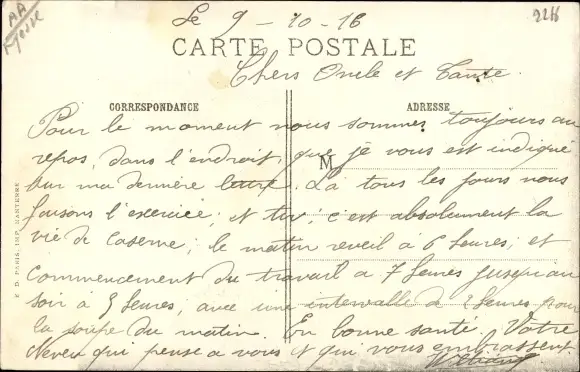 Le 9-10-16
2216
AA
CARTE POSTALE
Chers Oncle et Tante.
CORRESPONDANCE
ADRESSE
M
Pour le moment nous sommes toujours au
repos, dans l'endroit, que je vous est indiqué
sur ma dernière lettre. La tous les jours nous
faisons l'exercice, et tir, c'est absolument la
vie de caserne, le matin reveil à 6 heures, et
commencement du travail a 7 heures jusqu'au
soir à 5 heures, avec une intervalle de 2 heures pour
la soupe du matin. En bonne santé. Votre
Neveu qui pense a vous et qui vous embrassent.
F. D. PARIS, IMP. NANTERRE